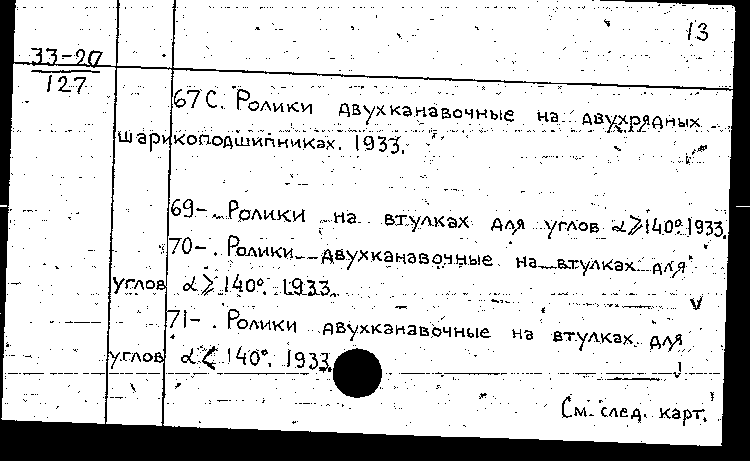 13
33-20
127
67С. Ролики двухканавочные на двухрядных
шарикоподшипниках. 1933.
69-. Ролики на втулках для углов α⩾140° 1933.
70-. Ролики двухканавочные на втулках для
углов α⩾140°. 1933.
71-. Ролики двухканавочные на втулках для
углов α⩽140°. 1933.
См. след. карт.